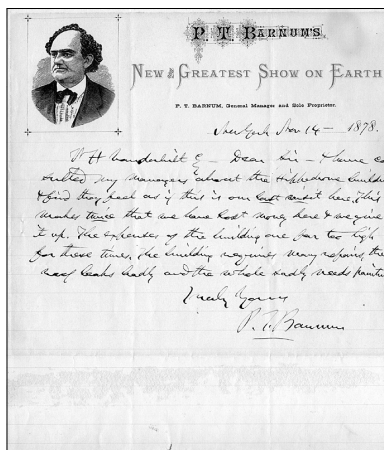 P. T. BARNUM'S
NEW & GREATEST SHOW ON EARTH
P. T. BARNUM, General Manager and Sole Proprietor.
New York Nov 14 - 1878.
W H Vanderbilt - Dear Sir - I have co
my managers about the Hippodrome buildin
& find they feel as if this is our last here. This
makes twice that we have lost money here & we give
it up. The expenses of the building are far too high
for these times. The building requires many repairs, the
roof leaks badly and the whole sadly needs
Truly Yours
P. T. Barnum